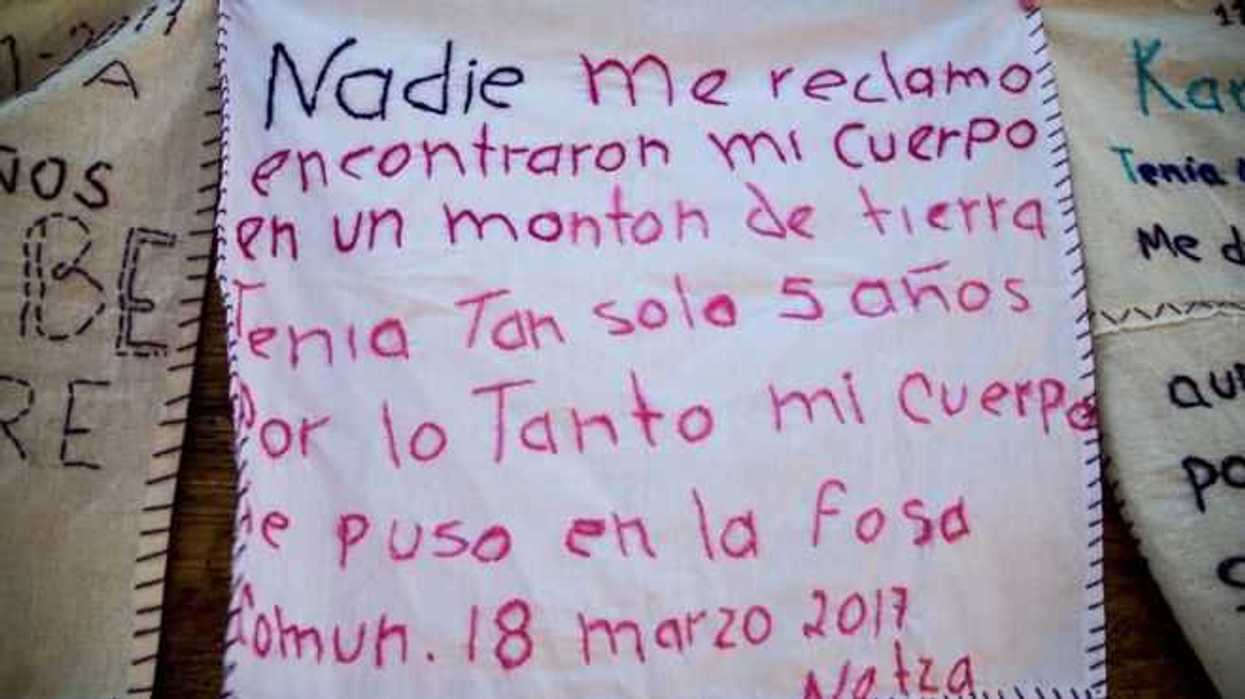 Nadie me reclamo
encontraron mi cuerpo
en un monton de tierra
Tenia Tan solo 5 años
Por lo Tanto mi cuerpo
se puso en la fosa
Comun. 18 marzo 2017
Netza
A
ÑOS
BE
RE
Kar
Tenia
Me d
au
po